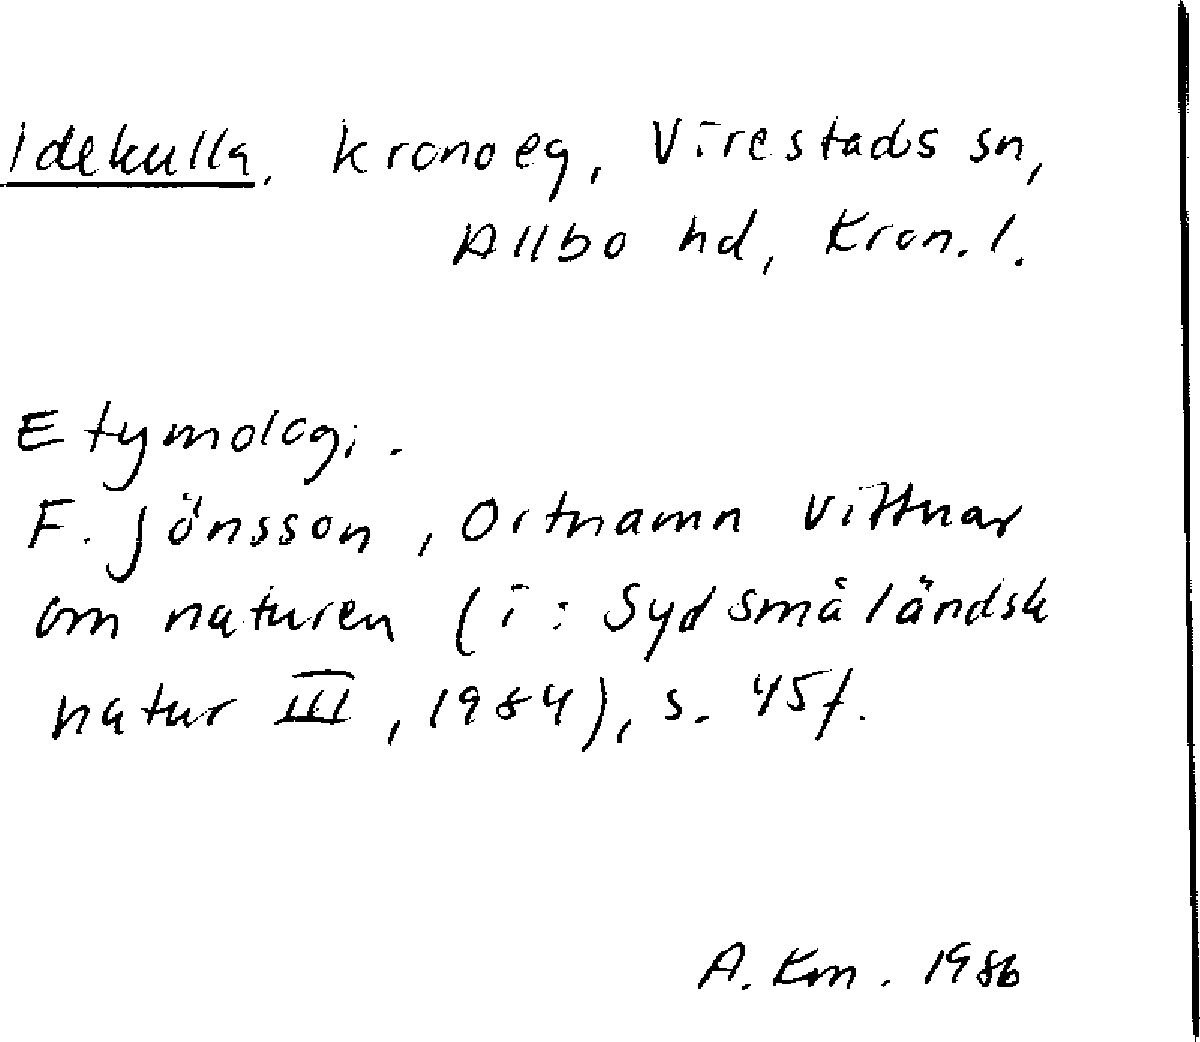 Idekulla, kronoeg, Virestads sn,
Allbo hd, Kron.l.
Etymologi.
F. Jönsson, Ortnamn vittnar
om naturen (i: Sydsmåländsk
natur III, 1984), s. 45f.
A. Km. 1986